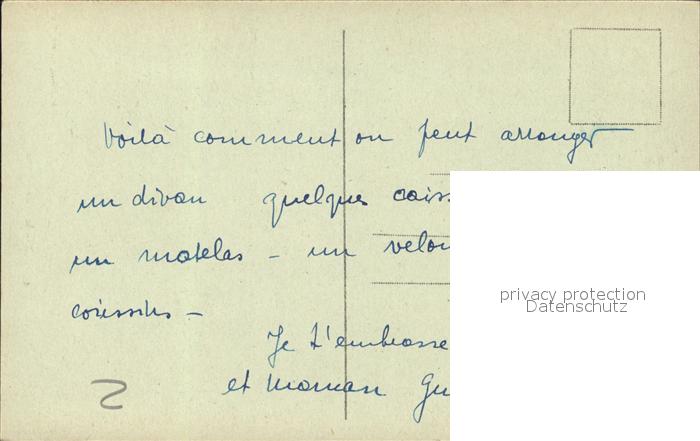 Voilà comment on peut arranger
un divan quelques caiss
un matelas – un velou
coussins –
Je t'embrasse
et maman Gu
privacy protection
Datenschutz